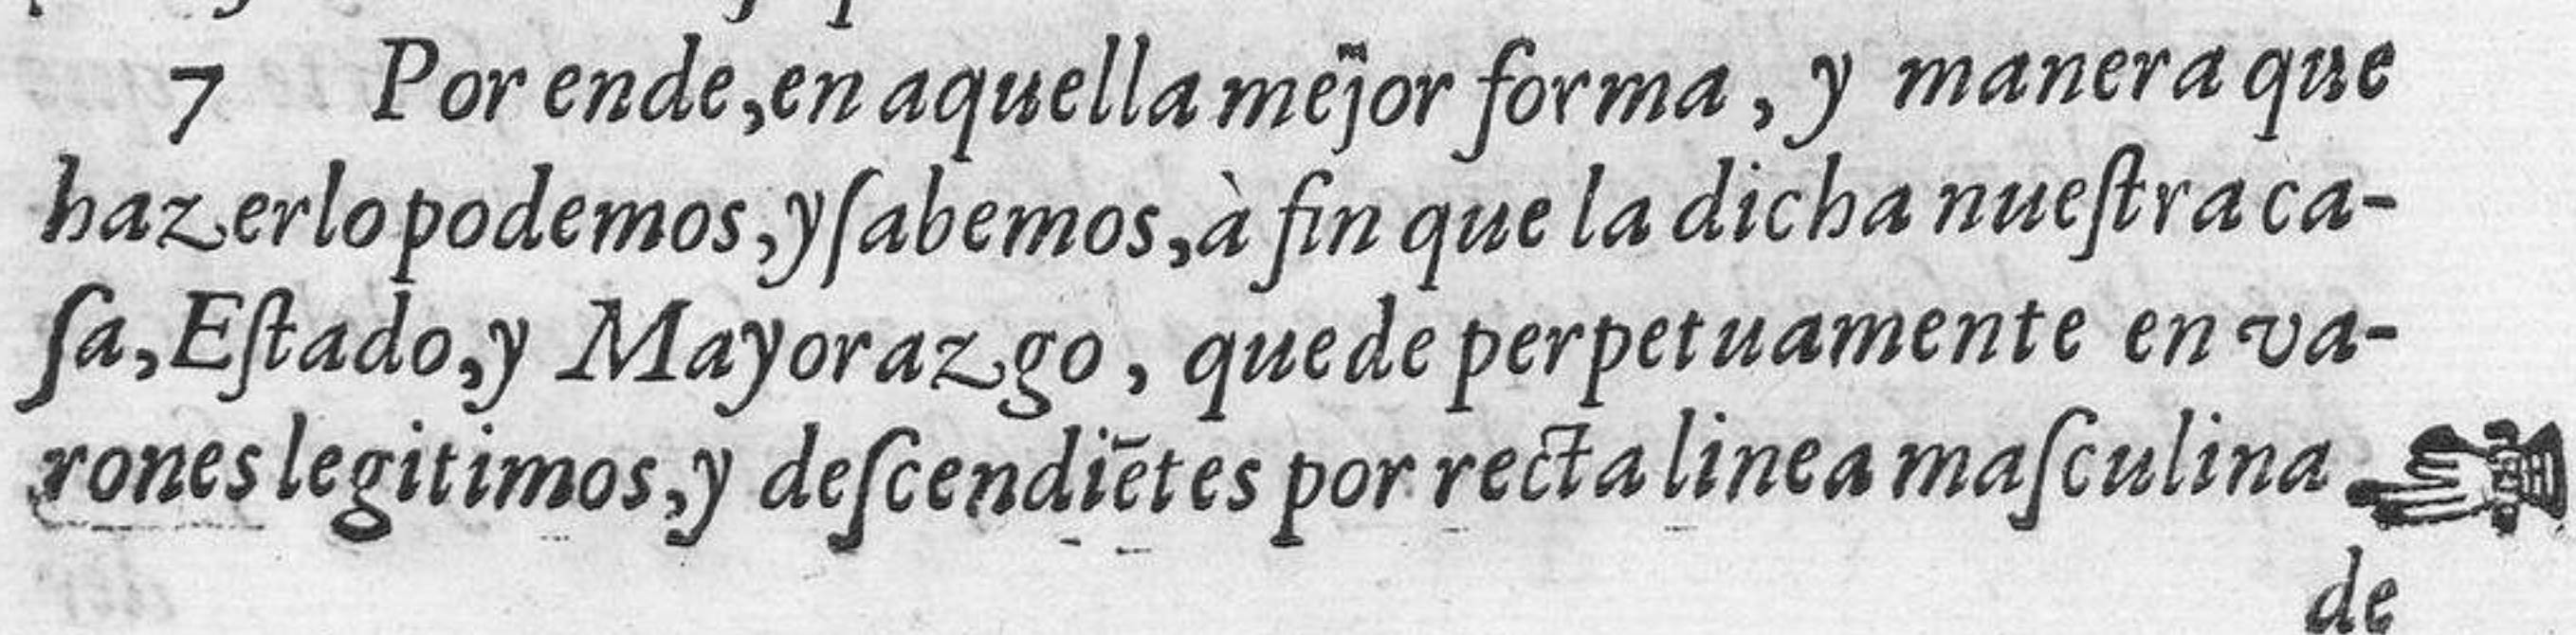 7 Por ende, en aquella mejor forma, y manera que
hazerlo podemos, y ſabemos, à fin que la dicha nueſtra ca-
ſa, Eſtado, y Mayorazgo, quede perpetuamente en va-
rones legitimos, y deſcendiẽtes por recta linea maſculina
de